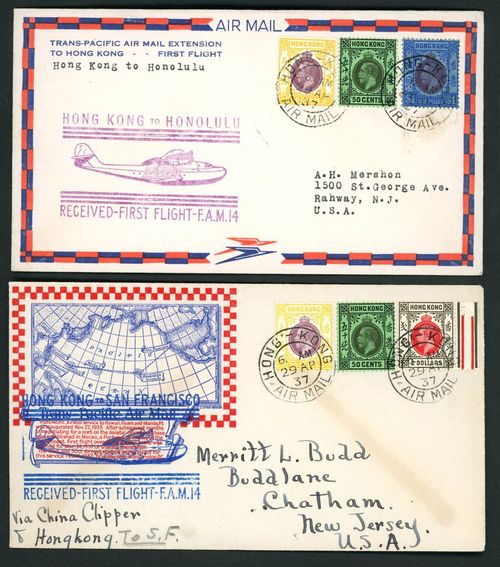 AIR MAIL
TRANS-PACIFIC AIR MAIL EXTENSION
TO HONG KONG - - FIRST FLIGHT
Hong Kong to Honolulu
HONG KONG
HONG KONG
50 CENTS
HONG KONG
HONG-KONG
AIR MAIL
37
AIR MAIL
HONG KONG TO HONOLULU
RECEIVED-FIRST FLIGHT-F.A.M.14
A.H. Mershon
1500 St.George Ave.
Rahway, N.J.
U.S.A.
HONG KONG
HONG KONG
50 CENTS
HONG KONG
2 DOLLARS
HONG-KONG
29 AP
37
AIR MAIL
HONG-KONG
29 AP
37
AIR MAIL
Pacific
HONG KONG TO SAN FRANCISCO
Trans-Pacific Air Mail
inaugurated Nov. 22, 1935.
RECEIVED-FIRST FLIGHT-F.A.M.14
Merritt L. Budd
Budd Lane
Chatham
New Jersey
U.S.A.
Via China Clipper
Hongkong. To S.F.